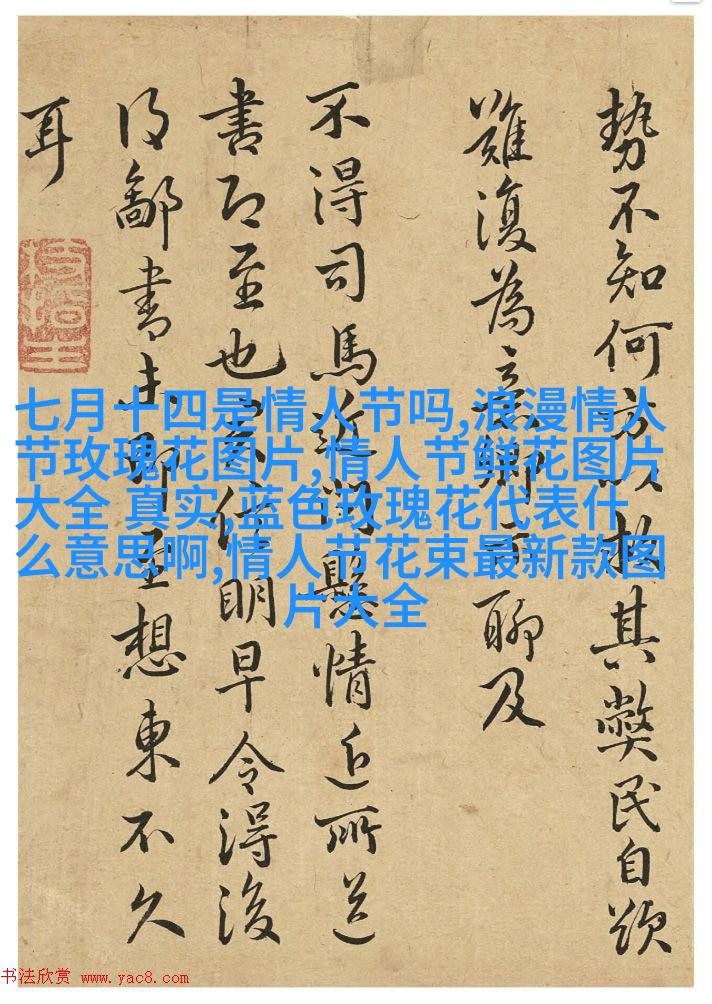 势不知何方以救其弊民自烦
難復為意卿佳聊及
不得司馬近問懸情近所送
書即至也安信明早令得後
得鄱書未即至想東不久
耳
七月十四是情人节吗,浪漫情人
节玫瑰花图片,情人节鲜花图片
大全 真实,蓝色玫瑰花代表什
么意思啊,情人节花束最新款图
片大全
书法欣赏 www.yac8.com